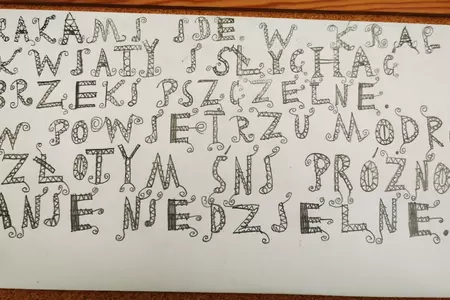 AKAMI IDĘ W
KWIATY I SŁYCHAĆ
BRZĘKI PSZCZELNE.
W POWIETRZU MODR
ZŁOTYM ŚNI PRÓŻNO
ANIE NIEDZIELNE.